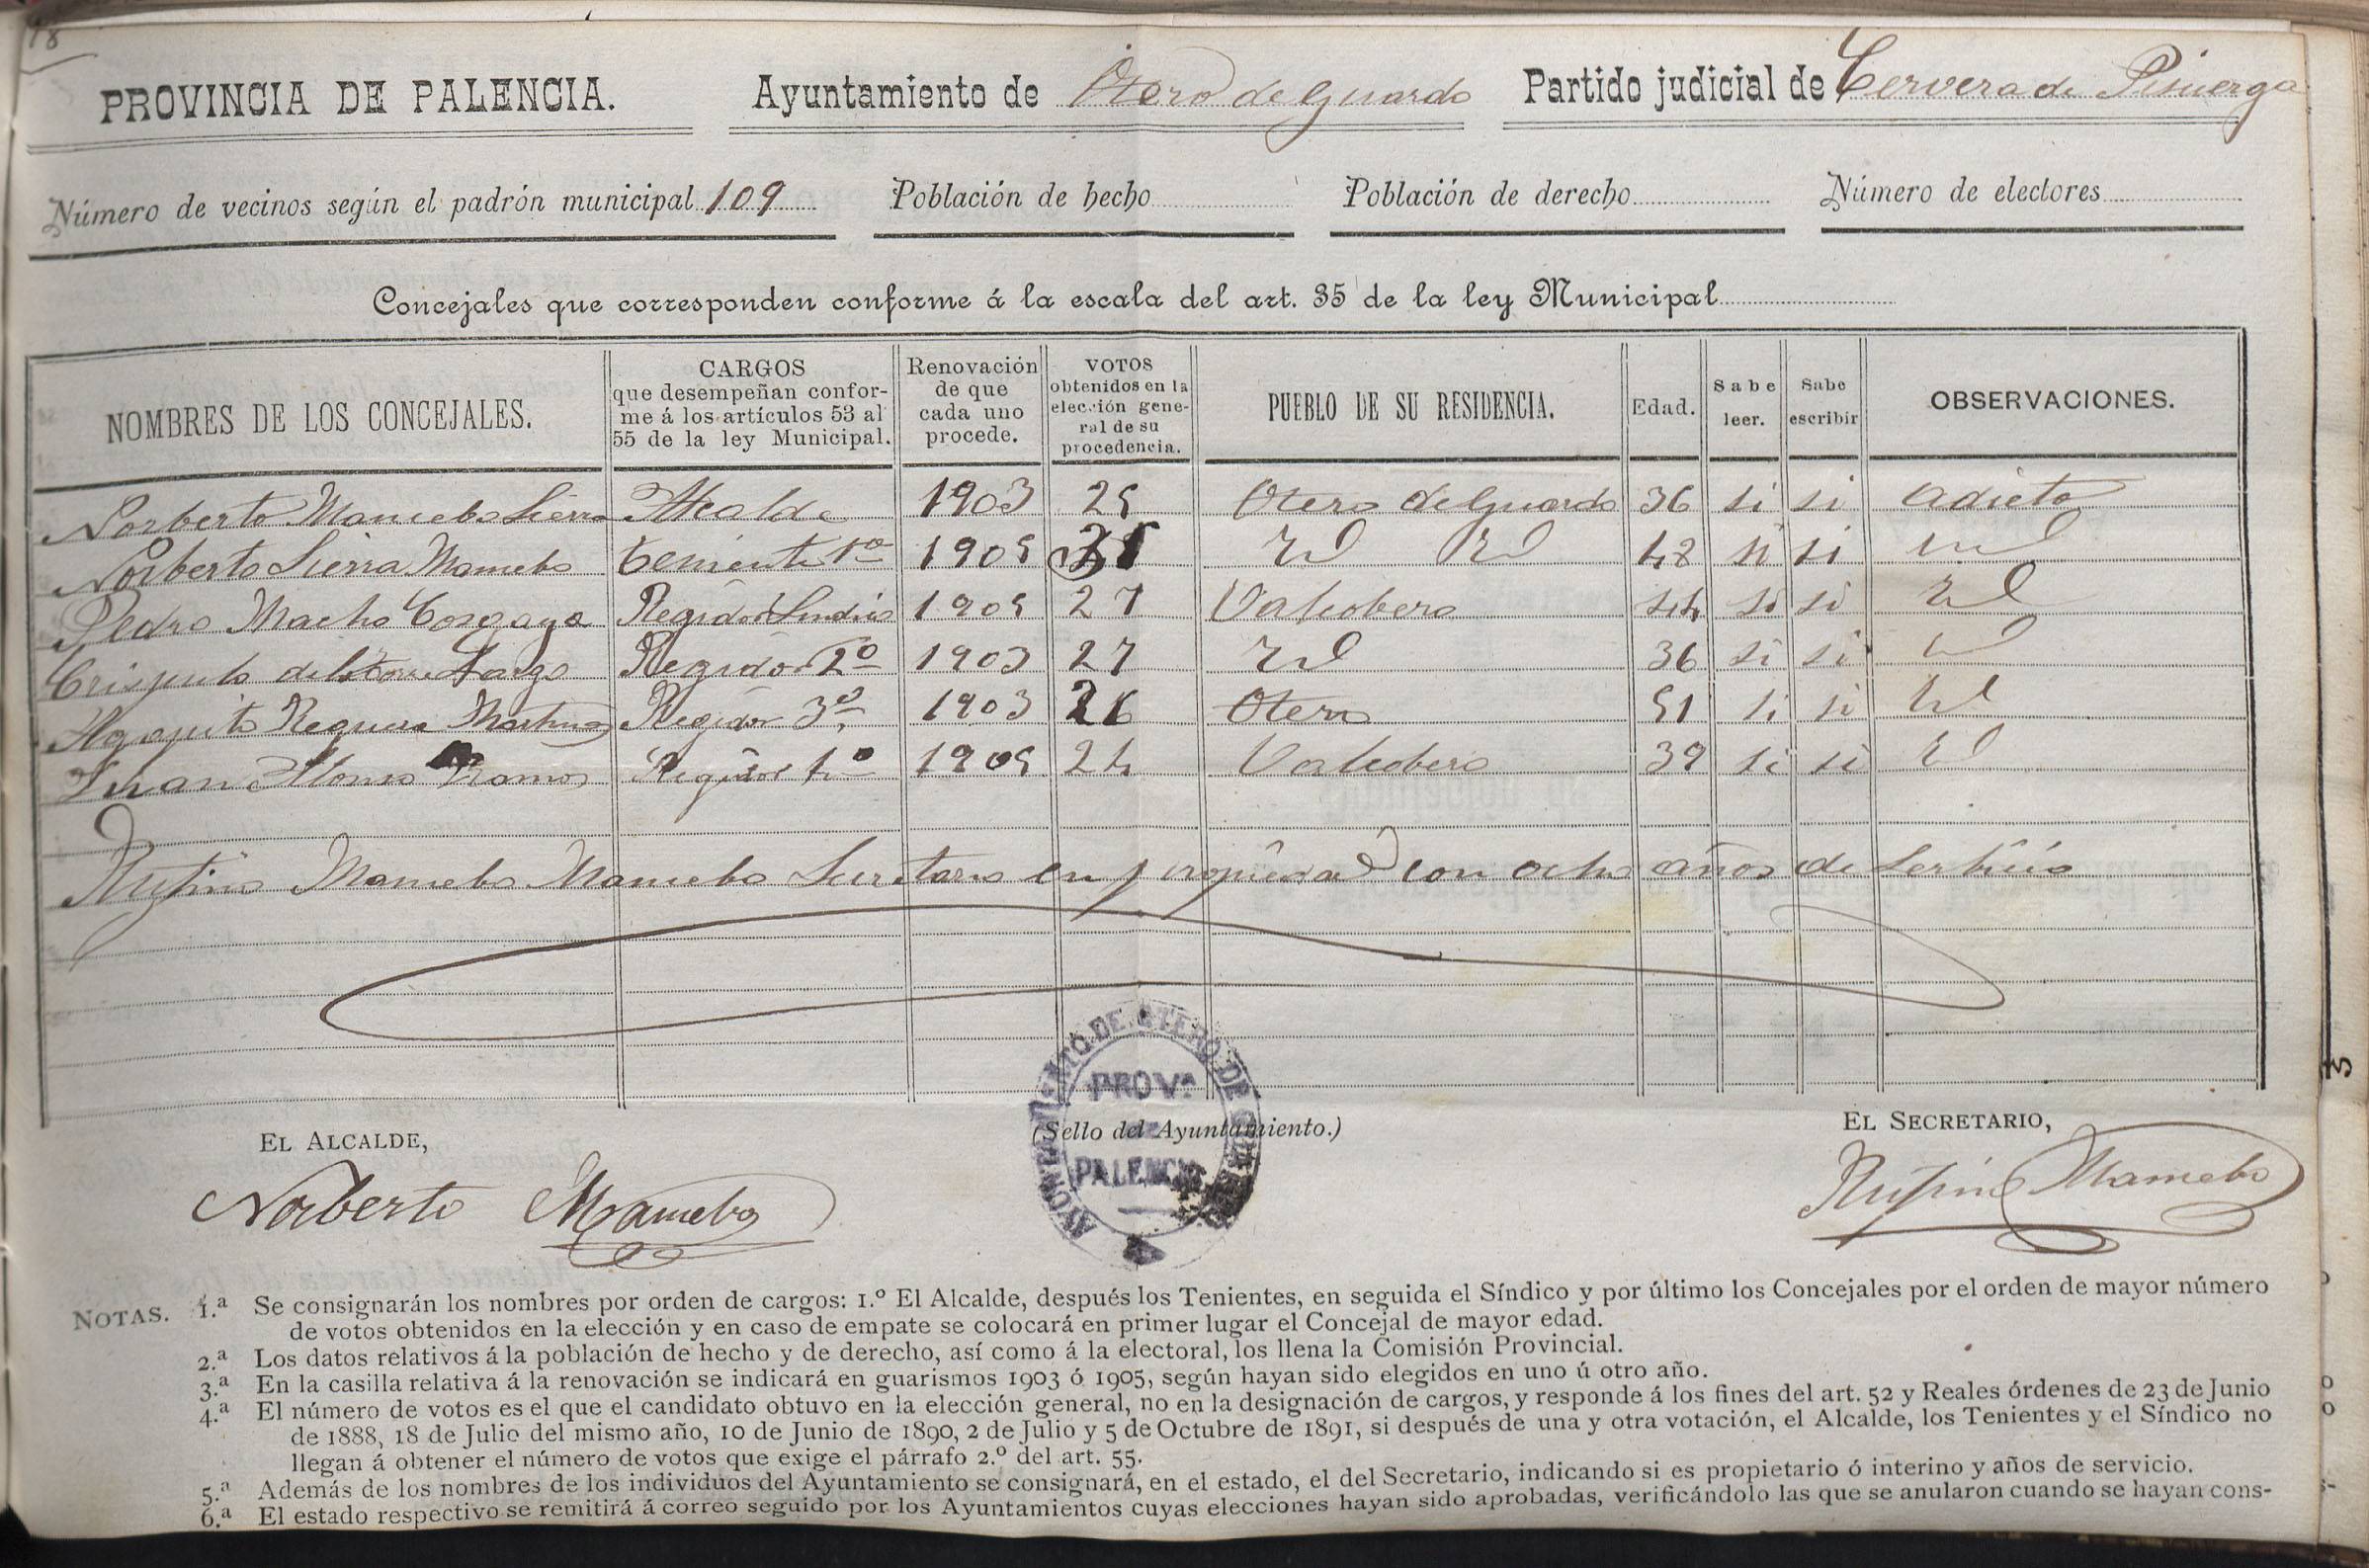 18
PROVINCIA DE PALENCIA. Ayuntamiento de Otero de Guardo Partido judicial de Cervera de Pisuerga
Número de vecinos según el padrón municipal 109 Población de hecho Población de derecho Número de electores
Concejales que corresponden conforme á la escala del art. 35 de la ley Municipal
NOMBRES DE LOS CONCEJALES.
CARGOS
que desempeñan confor-
me á los artículos 53 al
55 de la ley Municipal.
Renovación
de que
cada uno
procede.
VOTOS
obtenidos en la
elección gene-
ral de su
procedencia.
PUEBLO DE SU RESIDENCIA.
Edad.
Sabe
leer.
Sabe
escribir
OBSERVACIONES.
Norberto Mancebo Sierra Alcalde 1903 25 Otero de Guardo 36 si si adicto
Norberto Sierra Mancebo Teniente 1º 1905 Id Id 48 si si id
Pedro Macho Corgaya Regidor Sindico 1905 27 Valcobero 44 si si Id
Crispulo de la Torre Largo Regidor 2º 1903 27 Id 36 si si Id
Agapito Reguera Martinez Regidor 3º 1903 26 Otero 51 si si Id
Juan Alonso Ramos Regidor 4º 1905 24 Valcobero 39 si si Id
Rufino Mancebo Mancebo Secretario en propiedad con ocho años de servicio
AYUNTAMIENTO DE OTERO DE GUARDO
PROVª
DE
PALENCIA
EL ALCALDE, (Sello del Ayuntamiento.) EL SECRETARIO,
Norberto Mancebo Rufino Mancebo
NOTAS. 1.ª Se consignarán los nombres por orden de cargos: 1.º El Alcalde, después los Tenientes, en seguida el Síndico y por último los Concejales por el orden de mayor número
de votos obtenidos en la elección y en caso de empate se colocará en primer lugar el Concejal de mayor edad.
2.ª Los datos relativos á la población de hecho y de derecho, así como á la electoral, los llena la Comisión Provincial.
3.ª En la casilla relativa á la renovación se indicará en guarismos 1903 ó 1905, según hayan sido elegidos en uno ú otro año.
4.ª El número de votos es el que el candidato obtuvo en la elección general, no en la designación de cargos, y responde á los fines del art. 52 y Reales órdenes de 23 de Junio
de 1888, 18 de Julio del mismo año, 10 de Junio de 1890, 2 de Julio y 5 de Octubre de 1891, si después de una y otra votación, el Alcalde, los Tenientes y el Síndico no
llegan á obtener el número de votos que exige el párrafo 2.º del art. 55.
5.ª Además de los nombres de los individuos del Ayuntamiento se consignará, en el estado, el del Secretario, indicando si es propietario ó interino y años de servicio.
6.ª El estado respectivo se remitirá á correo seguido por los Ayuntamientos cuyas elecciones hayan sido aprobadas, verificándolo las que se anularon cuando se hayan cons-